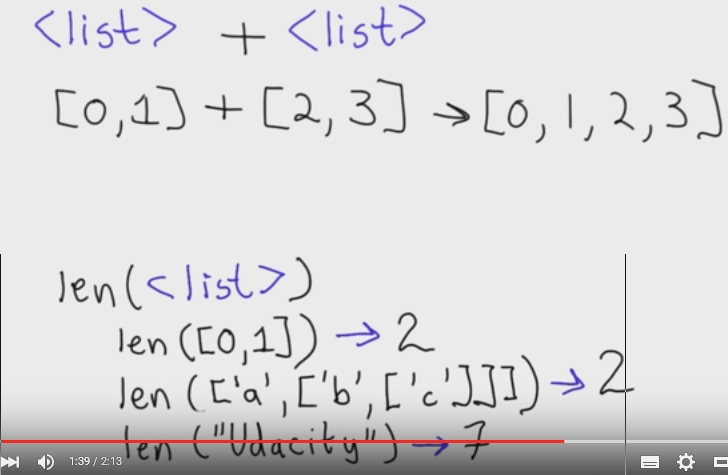 <list> + <list>
[0,1] + [2,3] → [0,1,2,3]
len(<list>)
len([0,1]) → 2
len(['a',['b',['c']]]) → 2
len("Udacity") → 7
1:39 / 2:13